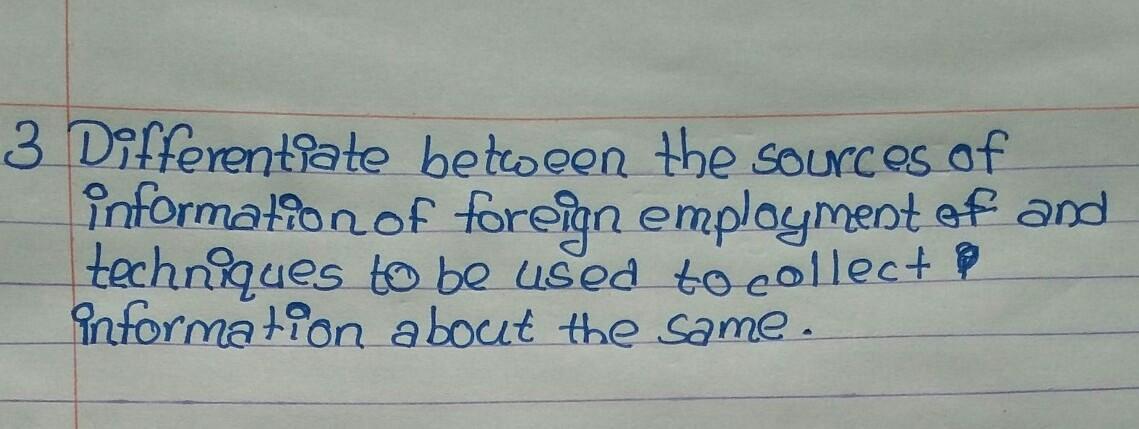 3 Differentiate between the sources of
information of foreign employment of and
techniques to be used to collect
information about the same.